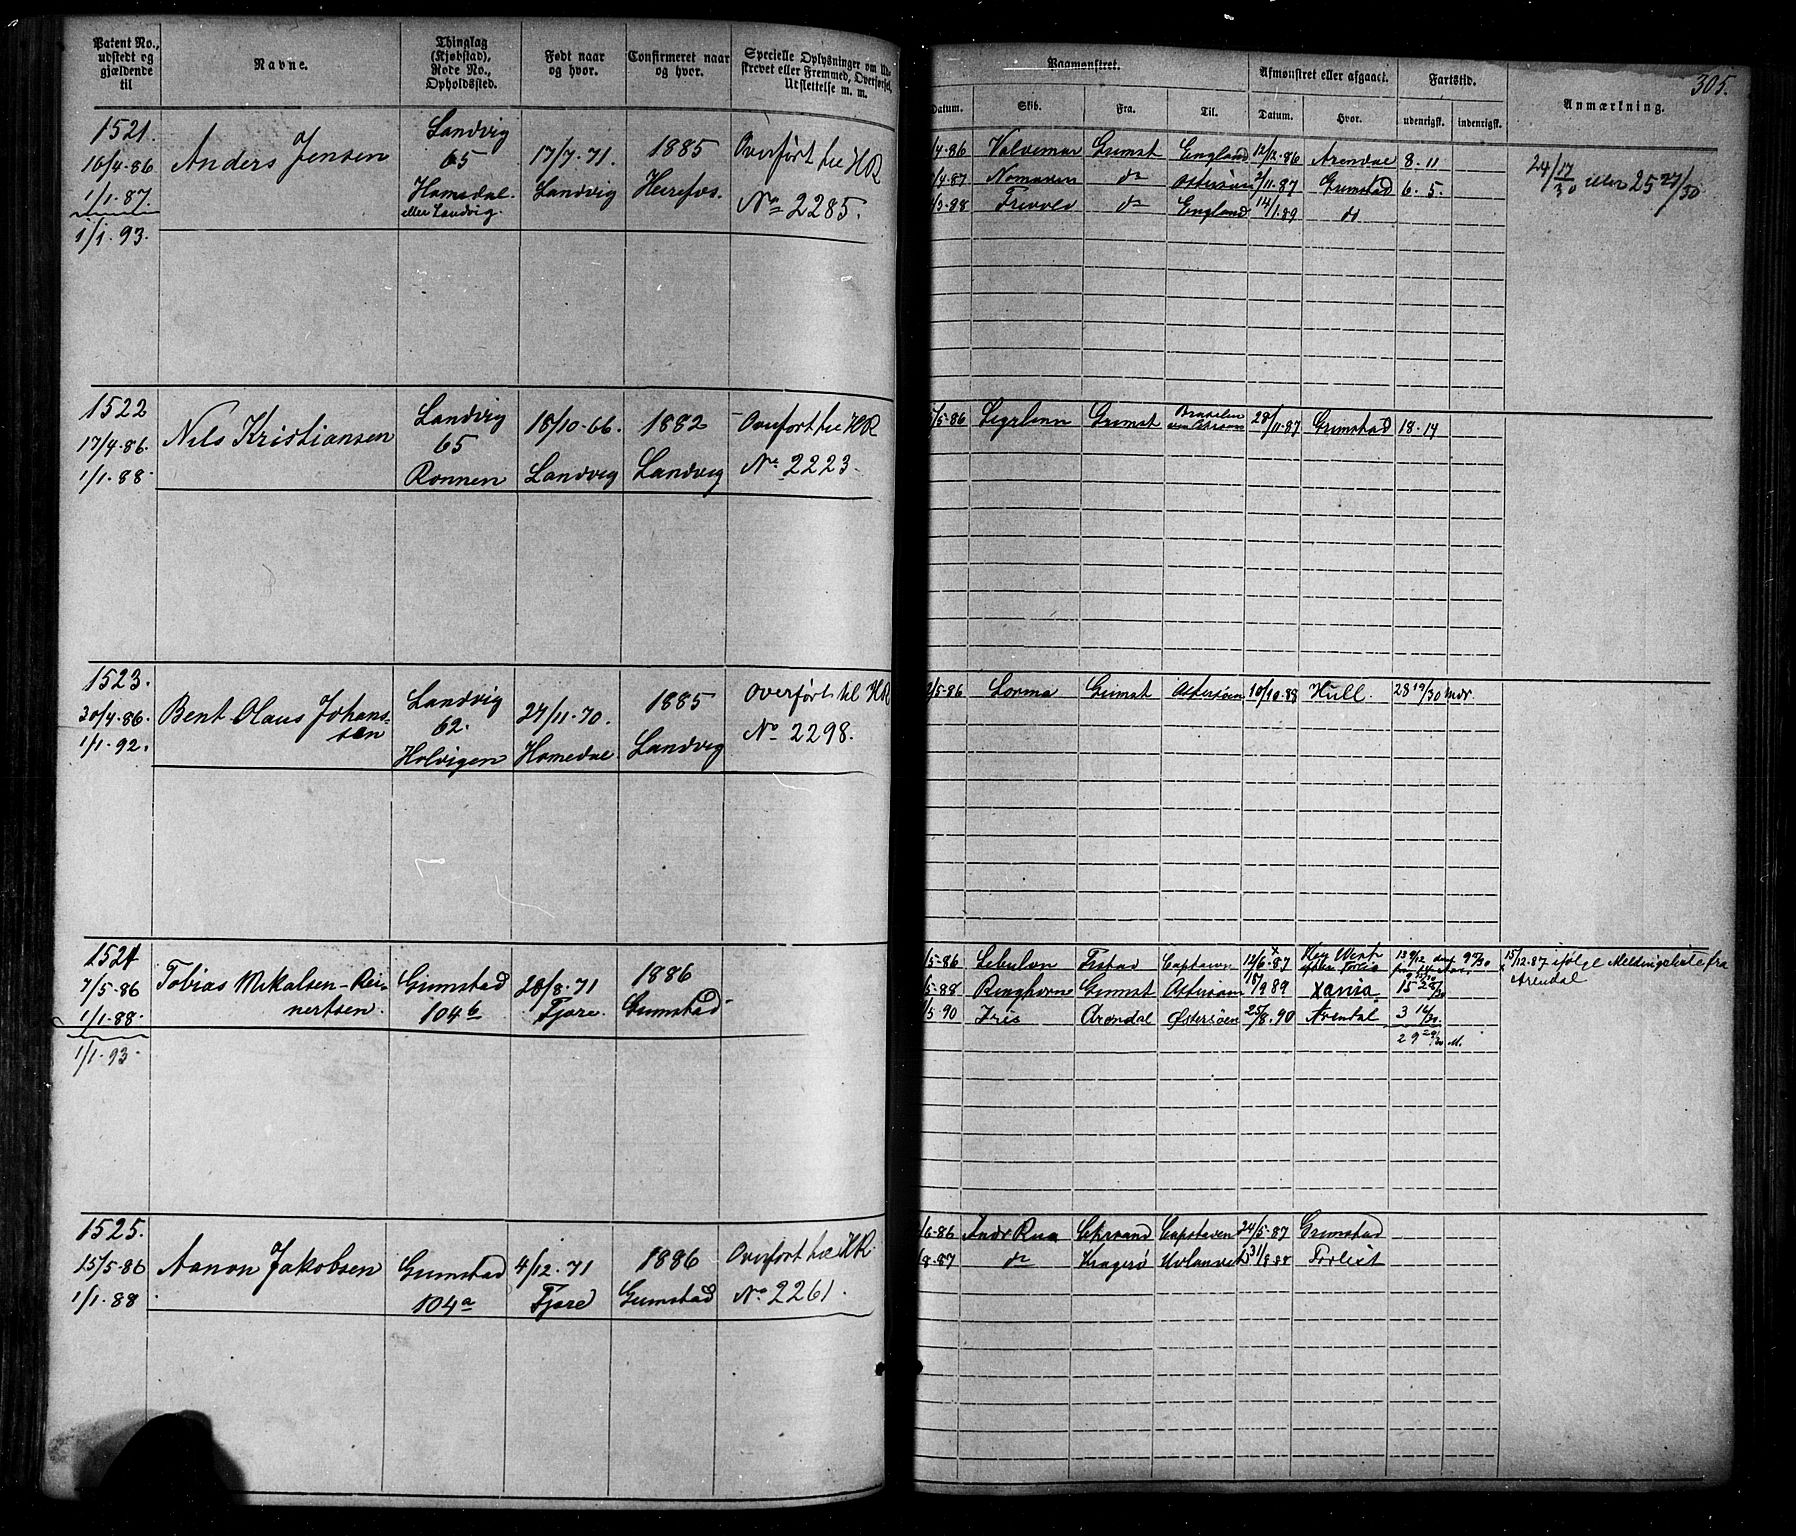 305.
Patent No., udstedt og gjældende til
Navne.
Thinglag (Kjøbstad), Rode No., Opholdssted.
Født naar og hvor.
Confirmeret naar og hvor.
Specielle Oplysninger om
strevet eller Fremmed, Overførsel,
Udslettelse m. m.
Paamønstret.
Afmønstret eller afgaaet.
Fartstid.
Anmærkning.
Datum. Skib. Fra. Til. Datum. Hvor. udenrigsk. indenrigsk.
1521.
10/4-86
1/1.87.
1/1.93.
Anders Jensen
Landvig
65
Homedal.
eller Landvig.
17/7.71.
Landvig
1885
Herefos.
Overført til HR
No 2285.
/4-86 Valdemar Grimst England 12/12.86 Arendal 8.11
/4.87 Nomaden do Østersøen 2/11.87 Grimstad 6.5.
/3-88 Trevold do England 14/1.89 do
24 17/30 eller 25 27/30
1522
17/4-86.
1/1.88.
Nils Kristiansen
Landvig
65
Ronnen
18/10-66.
Landvig
1882
Landvig
Overført til HR
No 2223.
/5-86 Sigrlinn Grimst 28/11.87 Grimstad 18.14
1523.
30/4-86.
1/1-92.
Bent Olaus Johans-
sen
Landvig
62.
Holvigen
27/11.70.
Homedal.
1885
Landvig
Overført til HR
No 2298.
/5-86 Lorma Grimst Østersøen 10/10.88 Hull. 28 19/30 mdr.
1524
7/5-86
1/1.88.
1/1.93.
Tobias Mikalsen-Rei-
nertsen.
Grimstad
104b
28/8.71
Fjære.
1886
Grimstad
/5-86 Sebulon Fistad Captown 12/6.87 Key West
15/12.87 ifølge Meldingsliste fra
Arendal
/5-88 Ringhorne Grimst Østersøen /9 89 Xania.
/5 90 Iris Arendal Østersøen 25/8.90 Arendal 3 16/30.
29 29/30 M.
1525.
15/5-86
1/1.88
Aanon Jakobsen
Grimstad
104a
4/12.71
Fjære
1886
Grimstad
Overført til HR
No 2261.
/6-86 Andr Rua Chrsand Capstaden 24/5-87 Grimstad
/8-87 do Kragerø 31/8.88 Forlist